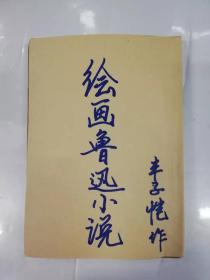 绘画鲁迅小说
丰子恺作